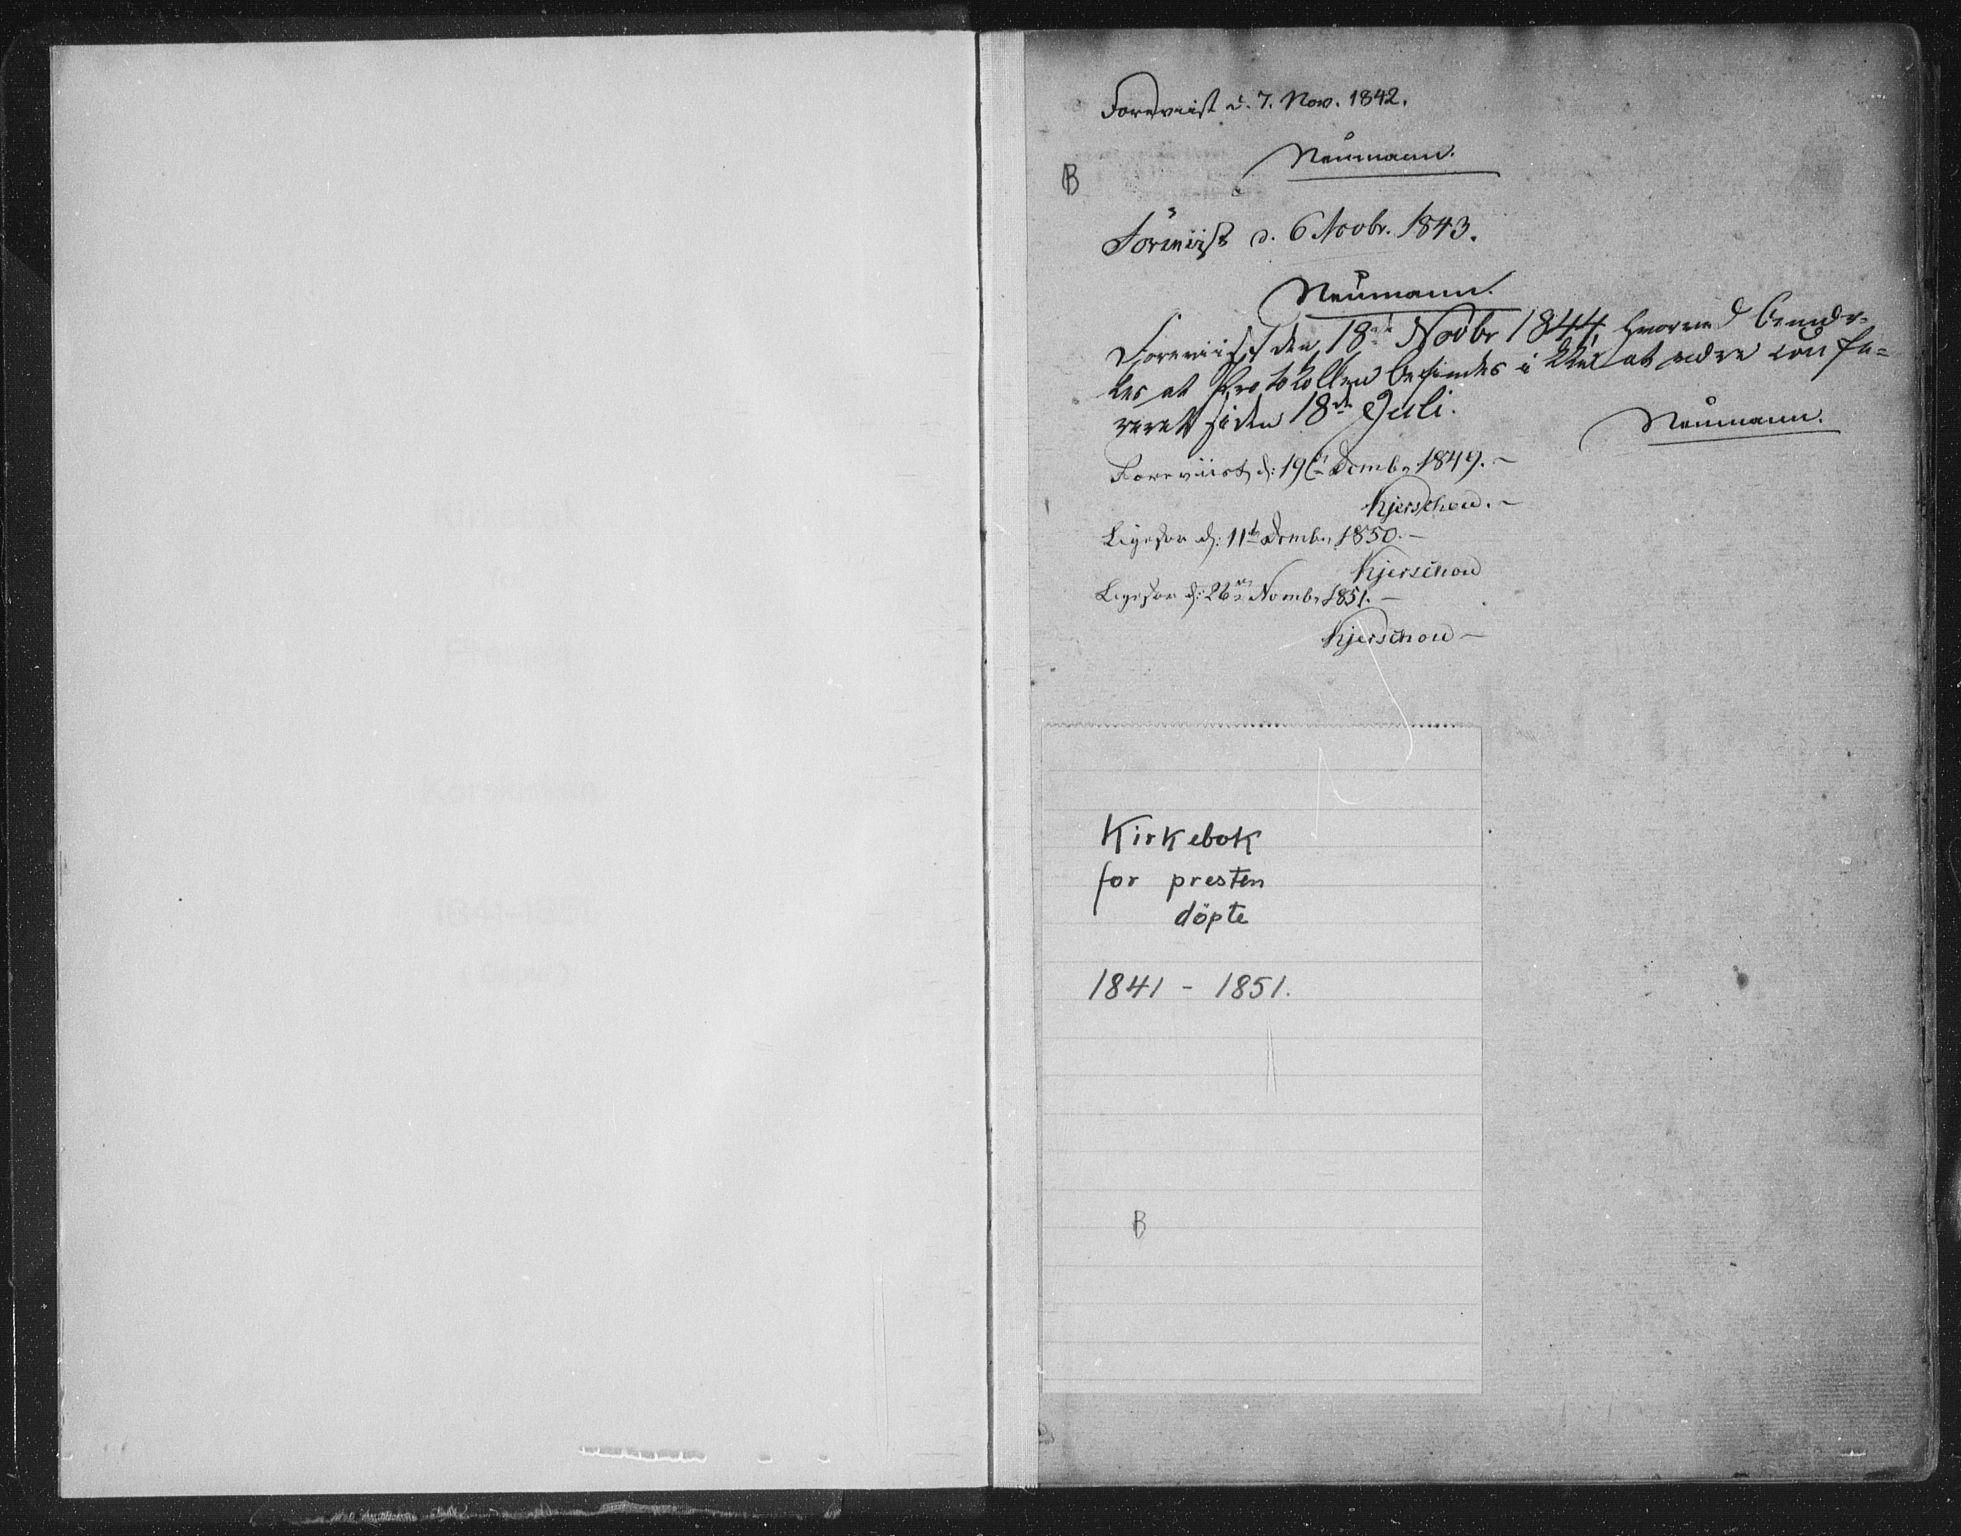 Foreviist d. 7. Nov. 1842.
Neumann.
B
Foreviist d. 6 Novbr. 1843.
Neumann.
Foreviist den 18de Novbr 1844, hvorved bemær-
kes at Protokollen befindes i ei at være confe-
reret siden 18de Juli.
Neumann.
Foreviist d: 19de Decmbr 1849.-
Kjerschow.-
Ligesaa d: 11te Decmbr 1850.-
Kjerschow
Ligesaa d: 26de Novmbr 1851.-
Kjerschow-
Kirkebok
for presten
döpte
1841 - 1851.
B